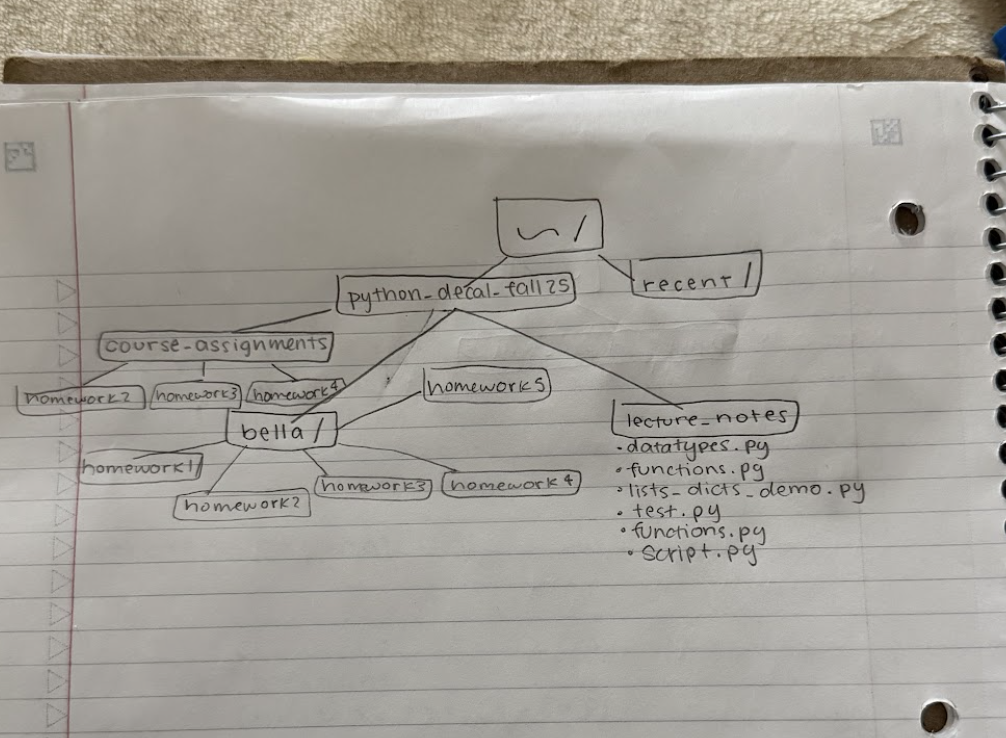 ~/
python_decal_fall25
recent/
course_assignments
homework2
homework3
homework4
homework5
bella/
homework1/
homework2
homework3
homework4
lecture_notes
• datatypes.py
• functions.py
• lists_dicts_demo.py
• test.py
• functions.py
• script.py